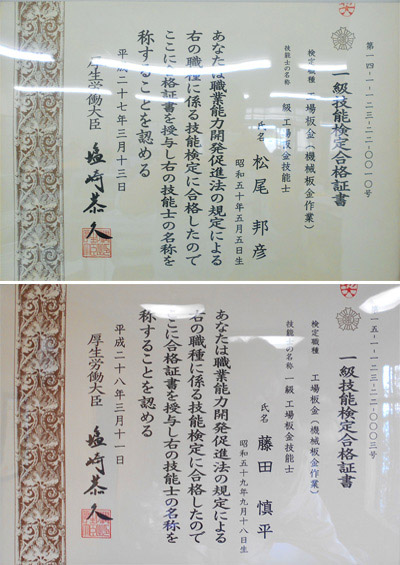 第一四-一-一二三-二二-〇〇一〇号
一級技能検定合格証書
検定職種 工場板金(機械板金作業)
技能士の名称 一級 工場板金技能士
氏名 松尾 邦彦
昭和五十年五月五日生
あなたは職業能力開発促進法の規定による
右の職種に係る技能検定に合格したので
ここに合格証書を授与し右の技能士の名称を
称することを認める
平成二十七年三月十三日
厚生労働大臣 塩崎恭久
一五-一-一二三-二二-〇〇〇三号
一級技能検定合格証書
検定職種 工場板金(機械板金作業)
技能士の名称 一級 工場板金技能士
氏名 藤田 慎平
昭和五十九年九月十八日生
あなたは職業能力開発促進法の規定による
右の職種に係る技能検定に合格したので
ここに合格証書を授与し右の技能士の名称を
称することを認める
平成二十八年三月十一日
厚生労働大臣 塩崎恭久